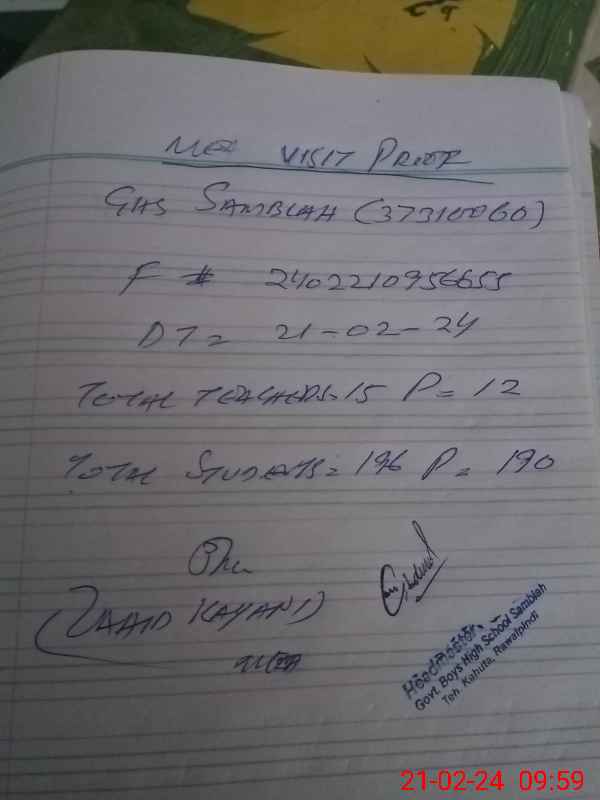 MEA VISIT PROOF
GHS SAMBLAH (37310060)
F # 2402210956655
DT = 21-02-24
TOTAL TEACHERS = 15 P = 12
TOTAL STUDENTS = 196 P = 190
(ZAAID KAYANI)
MEA
Headmaster
Govt. Boys High School Samblah
Teh. Kahuta, Rawalpindi
21-02-24 09:59